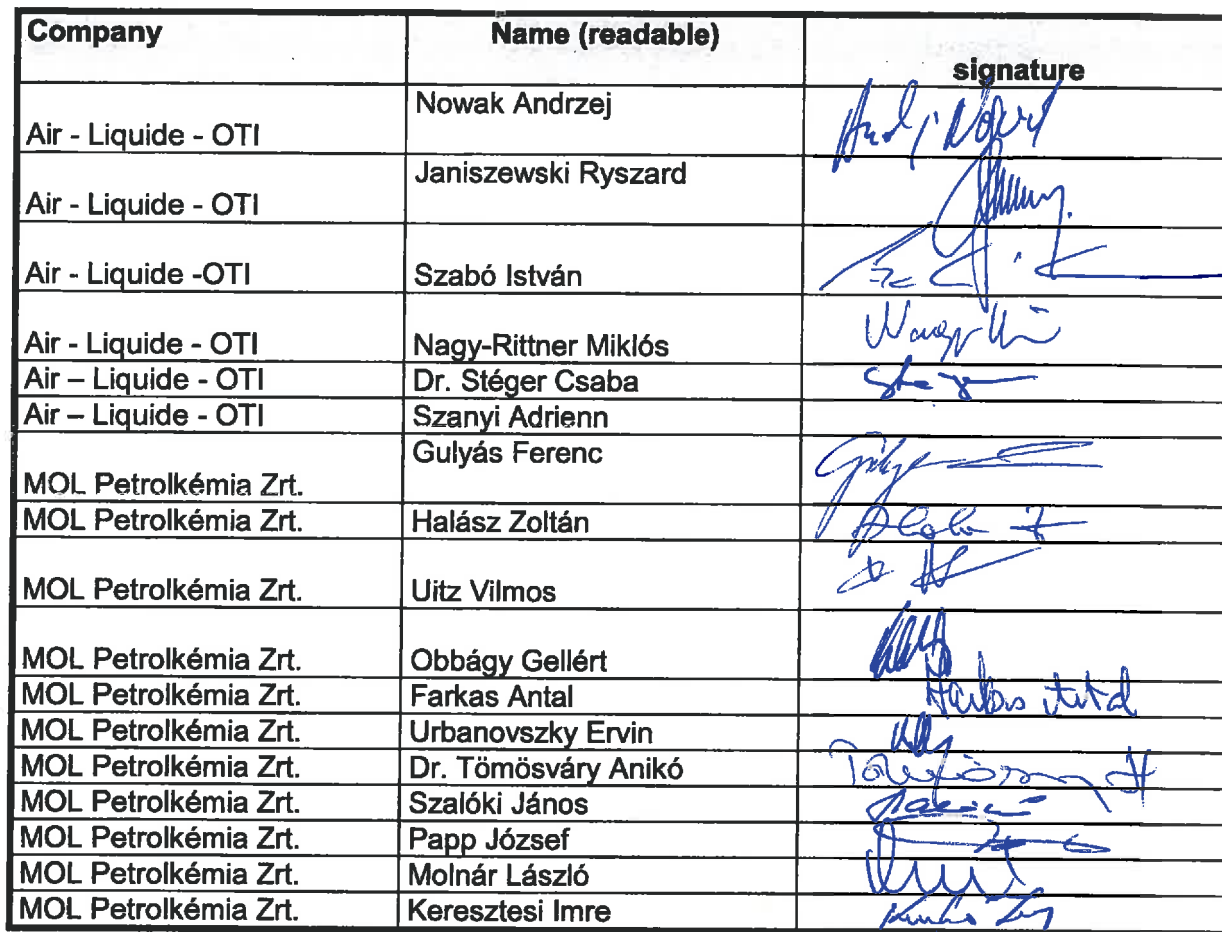 Company Name (readable) signature
Air - Liquide - OTI Nowak Andrzej
Air - Liquide - OTI Janiszewski Ryszard
Air - Liquide -OTI Szabó István
Air - Liquide - OTI Nagy-Rittner Miklós
Air – Liquide - OTI Dr. Stéger Csaba
Air – Liquide - OTI Szanyi Adrienn
MOL Petrolkémia Zrt. Gulyás Ferenc
MOL Petrolkémia Zrt. Halász Zoltán
MOL Petrolkémia Zrt. Uitz Vilmos
MOL Petrolkémia Zrt. Obbágy Gellért
MOL Petrolkémia Zrt. Farkas Antal
MOL Petrolkémia Zrt. Urbanovszky Ervin
MOL Petrolkémia Zrt. Dr. Tömösváry Anikó
MOL Petrolkémia Zrt. Szalóki János
MOL Petrolkémia Zrt. Papp József
MOL Petrolkémia Zrt. Molnár László
MOL Petrolkémia Zrt. Keresztesi Imre